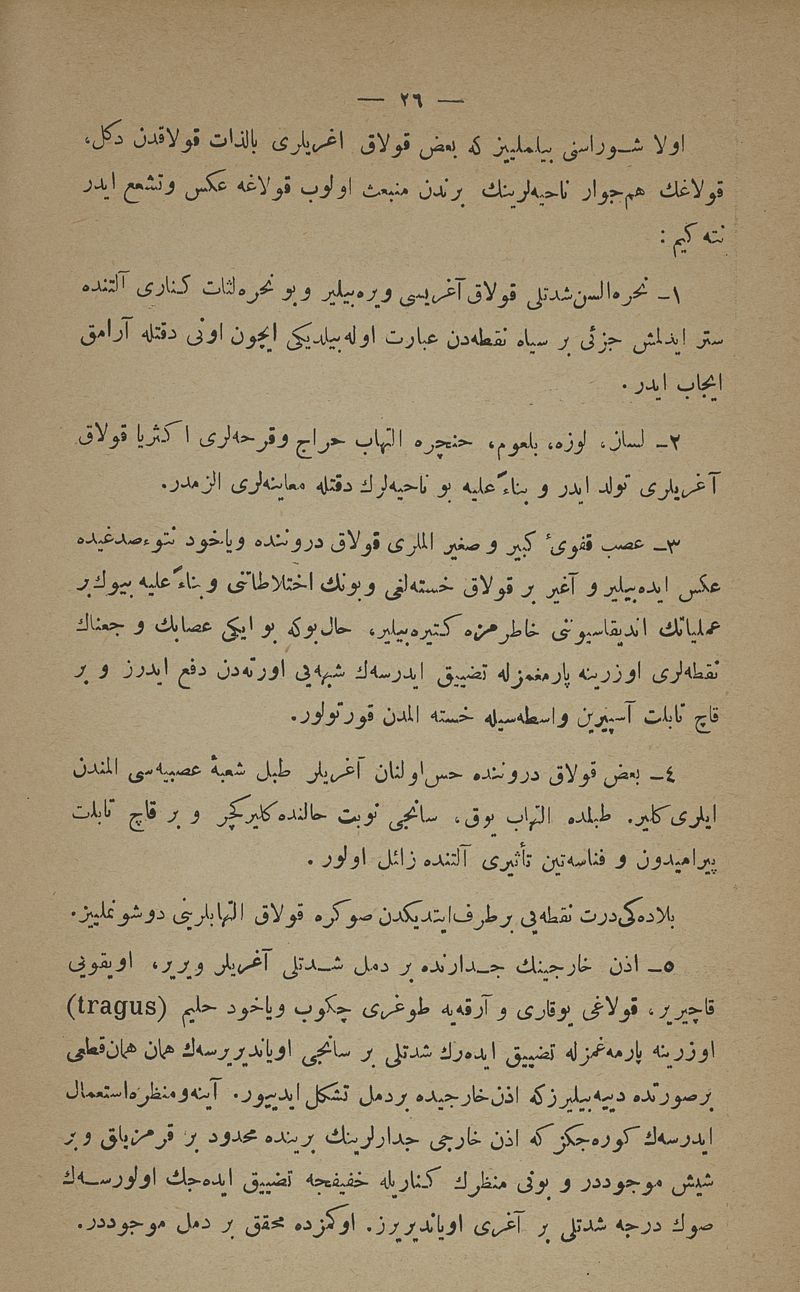 — ٢٦ —
اولا شـوراسنى بيلملييز كه بعض قولاق اغريلرى بالذات قولاقدن دكل،
قولاغك هم‌جوار ناحيه‌لرينك برندن منبعث اولوب قولاغه عكس وتشعع ايدر
نته كيم :
١ـ نخره‌السن شدتلى قولاق آغريسى ويره‌بيلير وبو نخره لثات كنارى آلتنده
ستر ايدلمش جزئى بر سياه نقطه‌دن عبارت اوله‌بيلديكى ايچون اونى دقتله آرامق
ايجاب ايدر .
٢ـ لسان، لوزه، بلعوم، حنجره التهاب خراج وقرحه‌لرى اكثريا قولاق
آغريلرى تولد ايدر و بناءً عليه بو ناحيه‌لرك دقتله معاينه‌لرى الزمدر.
٣ـ عصب قفوىٔ كبير و صغير الملرى قولاق دروننده وياخود نتوء صدغيده
عكس ايده‌بيلير و آغير بر قولاق خسته‌لغى وبونك اختلاطاتنى و بناءً عليه بيوك بر
عملياتك انديقاسيوننى خاطرمزه كتيره‌بيلير، حال‌بوكه بو ايكى عصابك و جعناك
نقطه‌لرى اوزرينه پارمغمزله تضييق ايدرسه‌ك شبهه‌يى اورته‌دن دفع ايدرز و بر
قاچ تابلت آسپيرين واسطه‌سيله خسته المدن قورتولور.
٤ـ بعض قولاق دروننده حس اولنان آغريلر طبل شعبهٔ عصبيه‌سى المندن
ايلرى كلير. طبلده التهاب يوق، سانجى نوبت حالنده كلير كچر و بر قاچ تابلت
پيراميدون و فناسه‌تين تأثيرى آلتنده زائل اولور .
بلاده‌كى درت نقطه‌يى برطرف ايتديكدن صوكره قولاق التهابلرينى دوشونملييز.
٥ـ اذن خارجينك جـدارنده بر دمل شـدتلى آغريلر ويرير، اويقويى
قاچيرير، قولاغى يوقارى و آرقه‌يه طوغرى چكوب وياخود حليم (tragus)
اوزرينه پارمه‌غمزله تضييق ايده‌رك شدتلى بر سانجى اوياندير‌يرسه‌ك همان همان قطعى
بر صورتده دييه‌بيليرز كه اذن خارجيده بر دمل تشكل ايدييور. آينه و منظره استعمال
ايدرسه‌ك كوره‌جكز كه اذن خارجى جدارلرينك برينده محدود بر قرمزيلق و بر
شيش موجوددر و بونى منظرك كناريله خفيفجه تضييق ايده‌جك اولورسـه‌ك
صوك درجه شدتلى بر آغرى اويانديريرز. اوكمزده محقق بر دمل موجوددر.